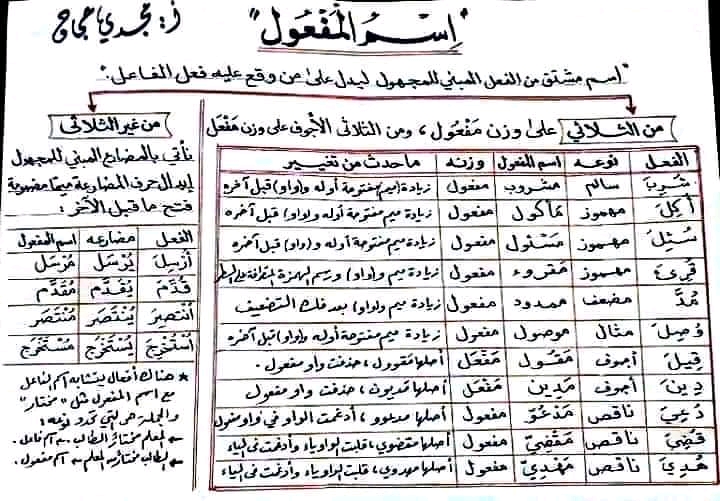 أ: مجدي حجاج
"اِسْمُ المَفْعُول"
"اسم مشتق من الفعل المبني للمجهول ليدل على من وقع عليه فعل الفاعل."
من الثلاثي على وزن مَفْعُول، ومن الثلاثى الأجوف على وزن مَفْعَل
الفعل نوعه اسم المفعول وزنه ما حدث من تغيير
شُرِبَ سالم مشروب مفعول زيادة (ميم) مفتوحة أوله و(واو) قبل آخره
أُكِلَ مهموز مأكول مفعول زيادة ميم مفتوحة أوله و(واو) قبل آخره
سُئِلَ مهموز مَسْئول مفعول زيادة ميم مفتوحة أوله و(واو) قبل آخره
قُرِئَ مهموز مَقروء مفعول زيادة ميم و(واو) ورسم الهمزة المتطرفة على السطر
مُدَّ مضعف ممدود مفعول زيادة ميم و(واو) بعد فك التضعيف
وُصِلَ مثال موصول مفعول زيادة ميم مفتوحة أوله و(واو) قبل آخره
قِيلَ أجوف مَقُول مَفْعَل أصلها مقوول، حذفت واو مفعول.
دِينَ أجوف مَدِين مَفْعَل أصلها مديون، حذفت واو مفعول
دُعِيَ ناقص مَدْعُوّ مفعول أصلها مدعوو، أدغمت الواو في واو مفعول
قُضِيَ ناقص مَقْضِيّ مفعول أصلها مقضوي، قلبت الواو ياء وأدغمت فى الياء
هُدِيَ ناقص مَهْدِيّ مفعول أصلها مهدوي، قلبت الواو ياء وأدغمت فى الياء
من غير الثلاثى
يأتي بالمضارع المبني للمجهول
إبدال حرف المضارعة ميمًا مضمومة
فتح ما قبل الآخر:
الفعل مضارعه اسم المفعول
أُرْسِلَ يُرْسَل مُرْسَل
قُدِّمَ يُقَدَّم مُقَدَّم
اُنْتُصِرَ يُنْتَصَر مُنْتَصَر
اُسْتُخْرِجَ يُسْتَخْرَج مُسْتَخْرَج
* هناك أفعال يتشابه اسم الفاعل
مع اسم المفعول مثل "مختار"
والجملة هي التي تحدد نوعه:
المعلم مختار الطالب. اسم فاعل.
الطالب مختار المعلم اسم مفعول.